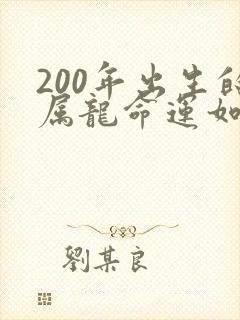 200年出生的
属龍命運如
劉某良